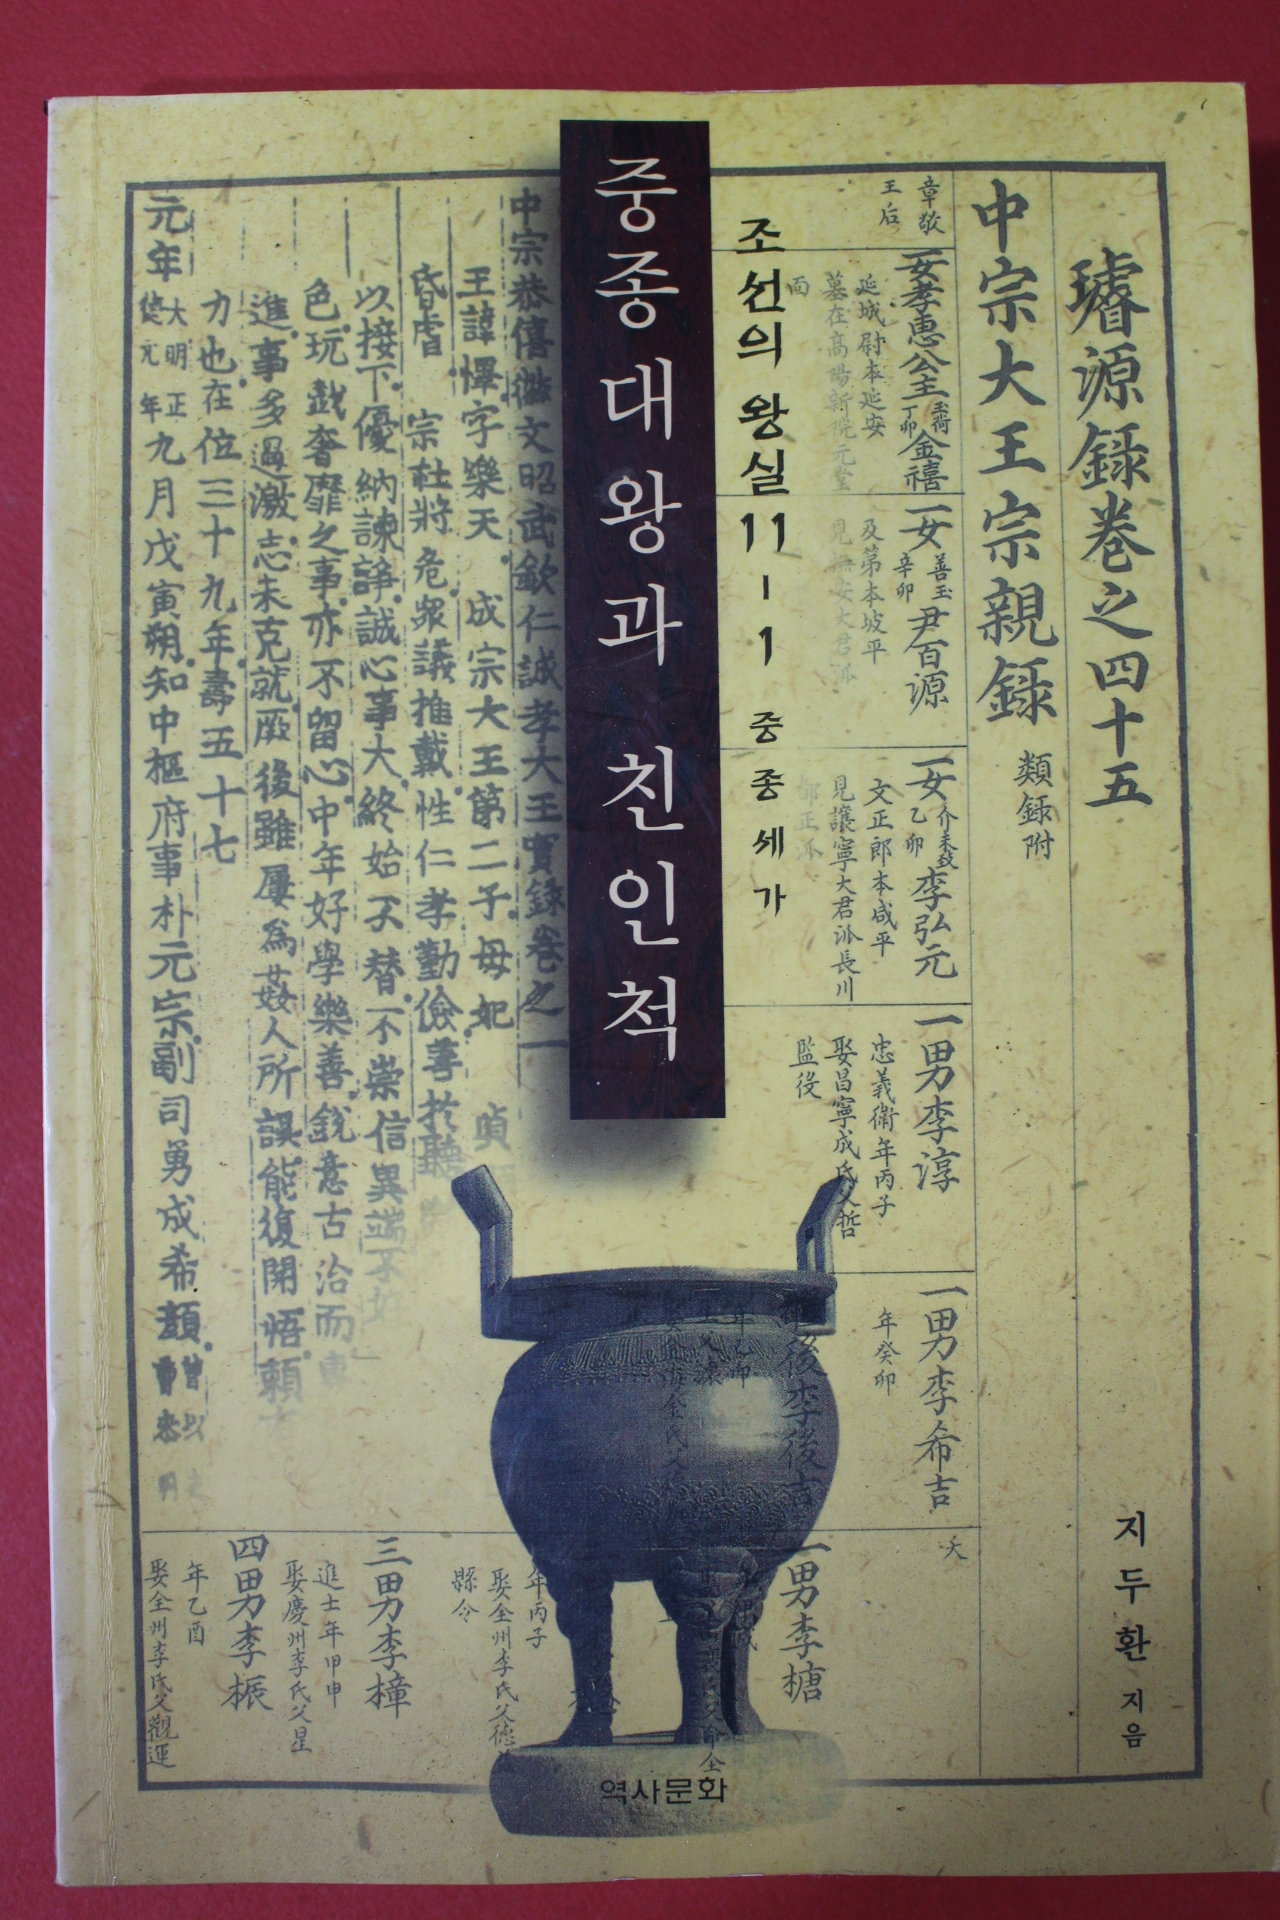 중종대왕과 친인척
조선의 왕실 11-1 중종세가
지두환 지음
역사문화
璿源錄卷之四十五
中宗大王宗親錄 類錄附
章敬
王后
一女孝惠公主 玉荷 丁卯 金禧
延城尉本延安
墓在高陽新院元堂
面
一女 善玉 辛卯 尹百源
及第本坡平
一女 介未致 乙卯 李弘元
文正郎本咸平
見讓寧大君派長川
一男李淳
忠義衛年丙子
娶昌寧成氏父哲
監役
一男李希吉
年癸卯
夭
一男李榶
年丙子
娶全州李氏父德
縣令
三男李樟
進士年甲申
娶慶州李氏父星
四男李桭
年乙酉
娶全州李氏父觀運
中宗恭僖徽文昭武欽仁誠孝大王實錄卷之一
王諱懌字樂天 成宗大王第二子母妃 貞
昏虐 宗社將危衆議推戴性仁孝勤儉善於聽
以接下優納諫諍誠心事大終始不替不崇信異端不好
色玩戱奢靡之事亦不留心中年好學樂善銳意古治而專
進事多過激志未克就厥後雖屢爲姦人所誤能復開悟賴
力也在位三十九年壽五十七
元年 大明正德元年 九月戊寅朔知中樞府事朴元宗副司勇成希顔